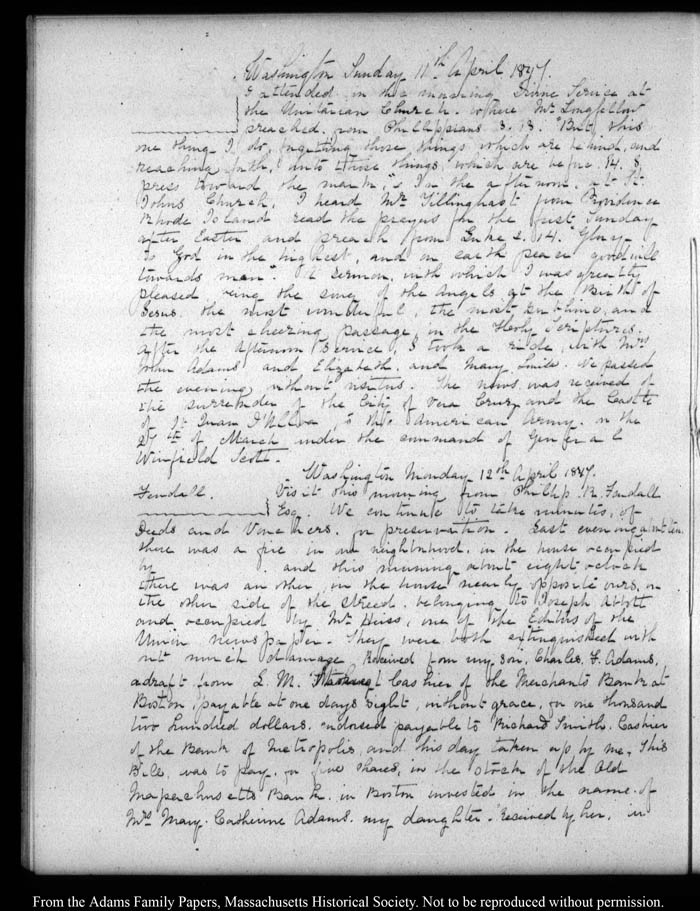 Washington Sunday 11th April 1847.
I attended in the morning Divine Service at
the Unitarian Church. where Mr. Longfellow
preached from Philippians 3. 13. "But, this
one thing I do, forgetting those things which are behind, and
reaching forth, unto those things, which are before. 14. I
press toward the mark," In the afternoon, at St.
Johns Church, I heard Mr Tillinghast from Providence
Rhode Island read the prayers for the first Sunday
after Easter and preach from Luke 2. 14. "Glory
to God in the highest, and on earth peace good will
towards men". A sermon, with which I was greatly
pleased, being the song of the Angels at the Birth of
Jesus. the most wonderful, the most sublime, and
the most cheering passage, in the Holy Scriptures.
After the Afternoon Service, I took a ride, with Mrs
John Adams and Elizabeth. and Mary. We passed
the evening without visitors. The news was received of
the surrender of the City of Vera Cruz and the Castle
of St Juan D'Ulloa to the American Army. on the
of March under the command of General
Winfield Scott.
Washington Monday 12th April 1847.
Fendall. Visit this morning from Philip. R. Fendall
Esq. We continue to take minutes, of
Deeds and Vouchers. for preservation. Last evening about ten
there was a fire in our neighborhood. in the house occupied
by and this morning about eight o'clock
there was an other, in the house nearly opposite ours, on
the other side of the street. belonging to Joseph Abbott
and occupied by Mr Heiss, one of the Editors of the
Union newspaper. They were both extinguished with
out much damage Received from my son, Charles. F. Adams,
a draft from L. M. Cashier of the Merchants Bank at
Boston payable at one days sight, without grace, for one thousand
two hundred dollars. endorsed payable to Richard Smith. Cashier
of the Bank of Metropolis, and this day taken up by me, This
was to pay. for five shares, in the stock of the Old
Massachusetts Bank. in Boston invested in the name of
Mrs Mary. Catherine Adams. my daughter. Received by her, in
From the Adams Family Papers, Massachusetts Historical Society. Not to be reproduced without permission.